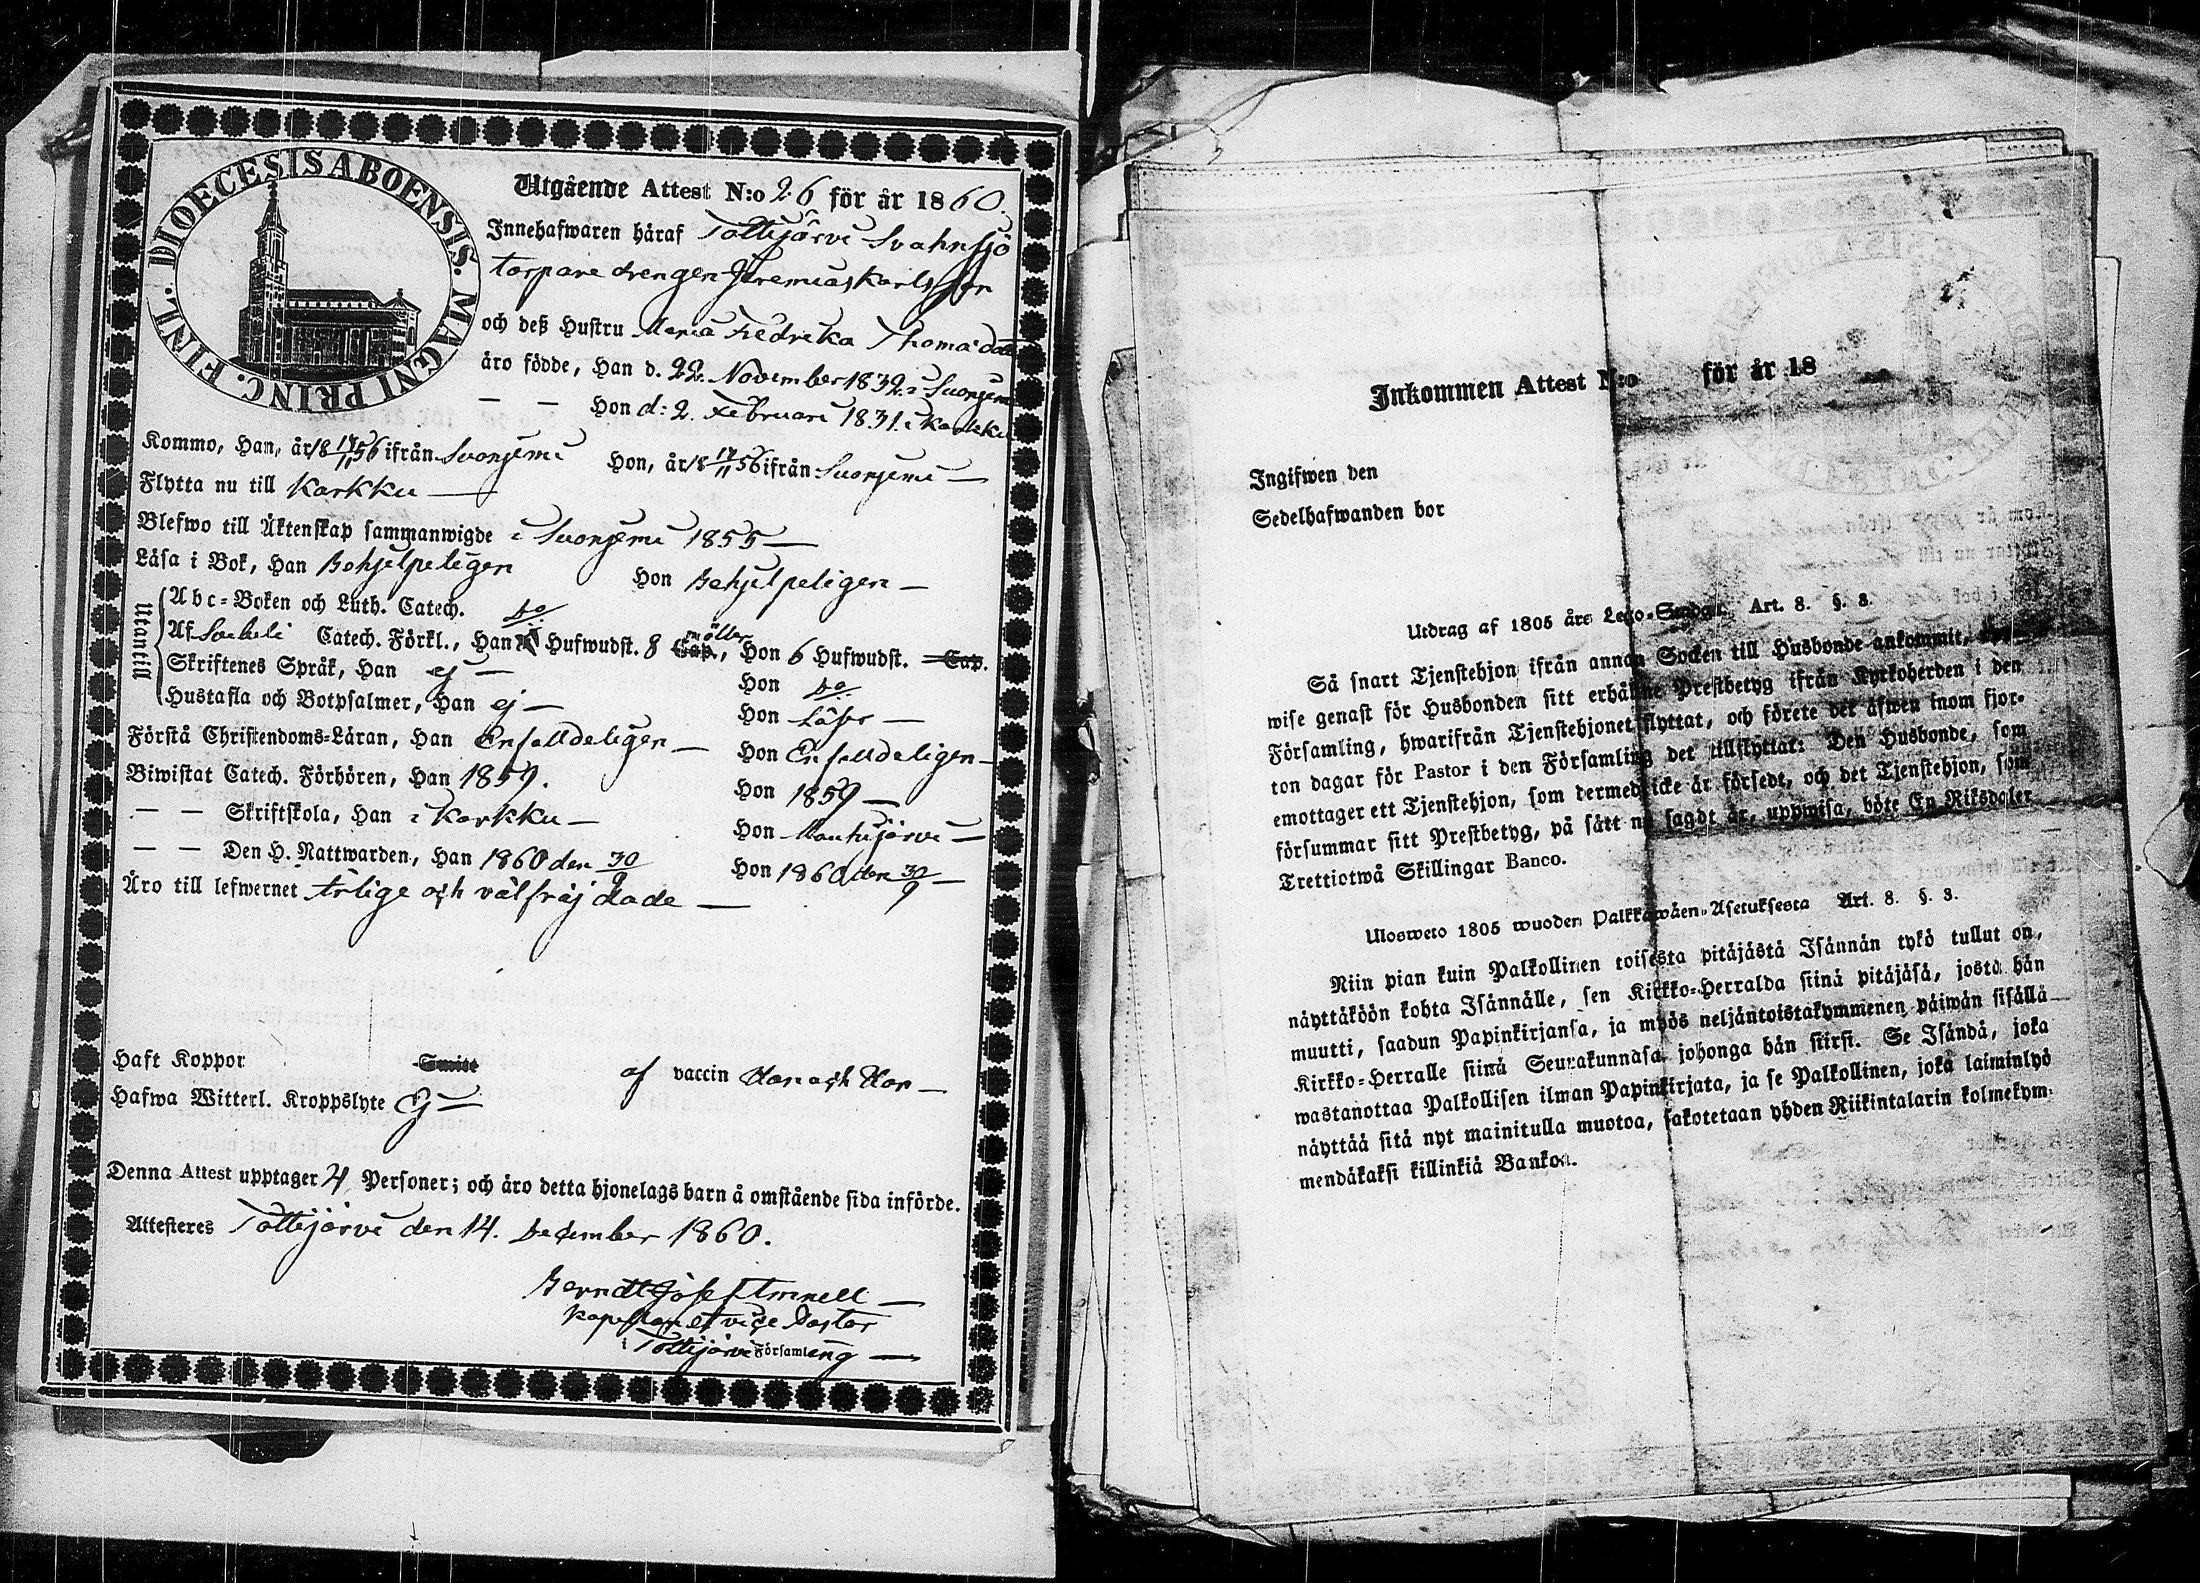 DIOECESIS ABOENSIS. MAGNI PRINC. FINL.
Utgående Attest N:o 26 för år 1860.
Innehafwaren häraf Tottijärvi Svahnsjö
torpare drengen Jeremias Karlsson
och deß Hustru Maria Fredrika Thomä dotter
äro födde, Han d. 22. November 1832. i Suoniemi
— — Hon d: 2. Februari 1831. i Karkku
Kommo, Han, år 18 17/11 56 ifrån Suoniemi Hon, år 18 17/11 56 ifrån Suoniemi —
Flytta nu till Karkku —
Blefwo till Äktenskap sammanwigde i Suoniemi 1855 —
Läsa i Bok, Han Behjelpeligen Hon Behjelpeligen —
Utantill
Abc-Boken och Luth. Catech. do
Af Svebeli Catech. Förkl., Han Hufwudst. 8 möller Cap., Hon 6 Hufwudst. Cap.
Skriftenes Språk, Han ej — Hon do
Hustafla och Botpsalmer, Han ej — Hon Läser —
Förstå Christendoms-Läran, Han Enfalldeligen — Hon Enfalldeligen —
Biwistat Catech. Förhören, Han 1859. Hon 1859 —
— — Skriftskola, Han i Karkku — Hon Mouhijärvi —
— — Den H. Nattwarden, Han 1860 den 30/9 Hon 1860 den 30/9 —
Äro till lefwernet ärlige och välfräjdade —
Haft Koppor Smitt af vaccin Han och Hon —
Hafwa Witterl. Kroppslyte Ej —
Denna Attest upptager 4 Personer; och äro detta hjonelags barn å omstående sida införde.
Attesteres Tottijärvi den 14. December 1860.
Berndt Josef
Kapellan et vice Pastor
i Tottijärvi Församling —
Inkommen Attest N:o för år 18
Ingifwen den
Sedelhafwanden bor
Utdrag af 1805 års Lego-Stadga. Art. 8. §. 3.
Så snart Tjenstehjon ifrån annan Socken till Husbonde ankommit,
wise genast för Husbonden sitt erhållne Prestbetyg ifrån Kyrkoherden i den
Församling, hwarifrån Tjenstehjonet flyttat, och förete det äfwen inom fjor-
ton dagar för Pastor i den Församling det tillflyttat: Den Husbonde, som
emottager ett Tjenstehjon, som dermed icke är försedt, och det Tjenstehjon, som
försummar sitt Prestbetyg, på sätt nu sagdt är, uppwisa, böte En Riksdaler
Trettiotwå Skillingar Banco.
Ulosweto 1805 wuoden Palkkawäen-Asetuksesta Art. 8. §. 3.
Niin pian kuin Palkollinen toisesta pitäjästä Isännän tykö tullut on,
näyttäköön kohta Isännälle, sen Kirkko-Herralda siinä pitäjäsä, josta hän
muutti, saadun Papinkirjansa, ja myös neljäntoistakymmenen päiwän sisällä
Kirkko-Herralle siinä Seurakunnasa, johonga hän siirsi. Se Isändä, joka
wastanottaa Palkollisen ilman Papinkirjata, ja se Palkollinen, joka laiminlyö
näyttää sitä nyt mainitulla muotoa, sakotetaan yhden Riikintalarin kolmekym-
mendäkaksi killinkiä Bankoa.